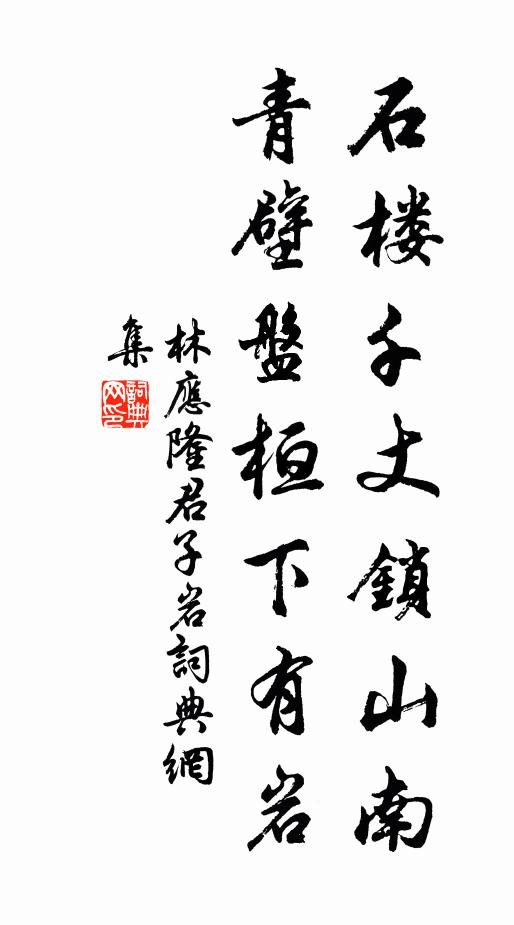 石楼千丈鎖山南
青壁盤桓下有岩
林應隆君子岩詞典網
集
詞典
网印